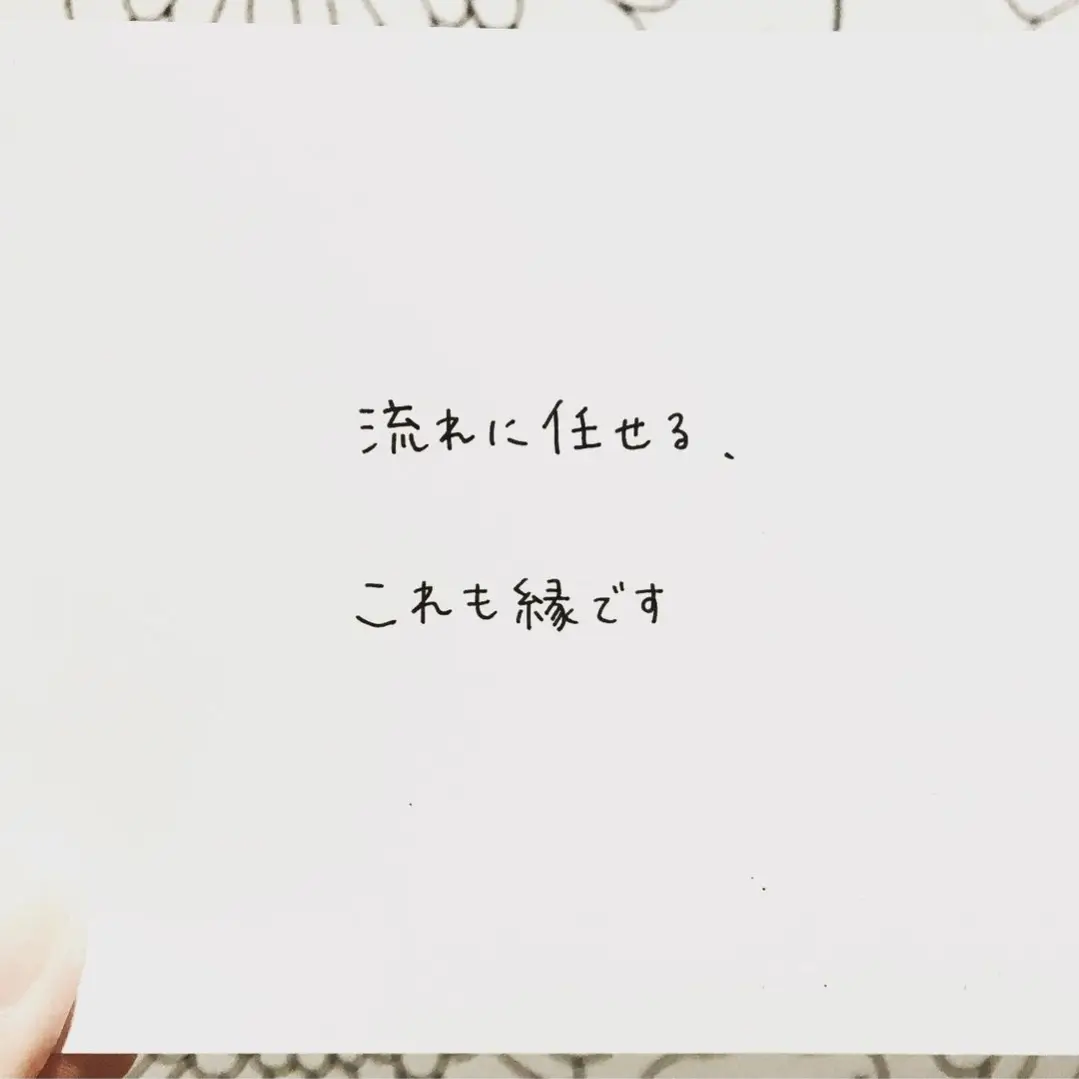 流れに任せる、
これも縁です